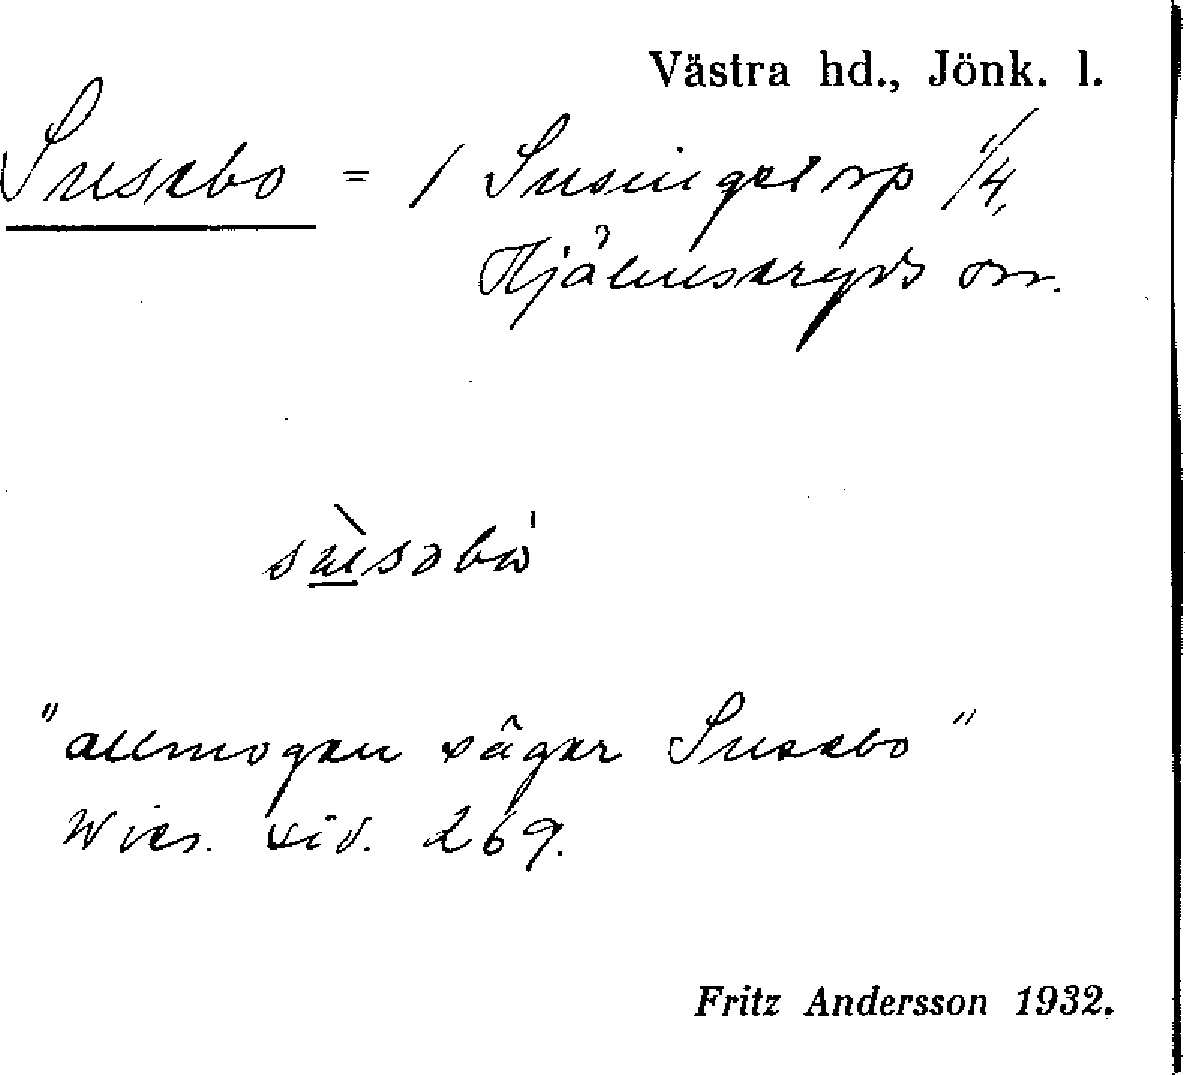 Västra hd., Jönk. l.
Susebo = / Susingetorp 1/4,
Hjälmseryds sn.
sùsəbω
"allmogen säger Susebo"
Wies. sid. 269.
Fritz Andersson 1932.